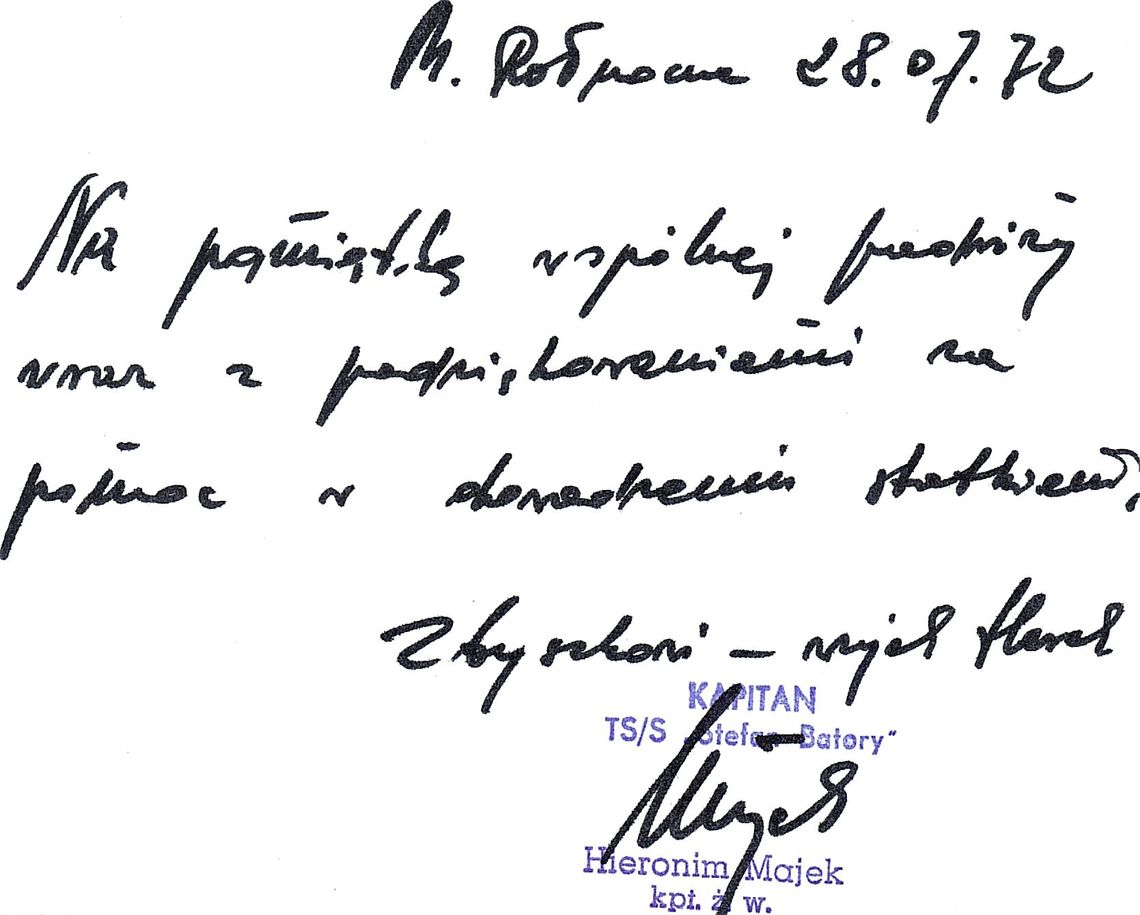 M. Północne 28.07.72
Na pamiątkę wspólnej podróży
wraz z podziękowaniami za
pomoc w dowodzeniu statkiem,
Zbyszkowi – wujek
KAPITAN
TS/S „Stefan Batory"
Majek
Hieronim Majek
kpt. ż. w.